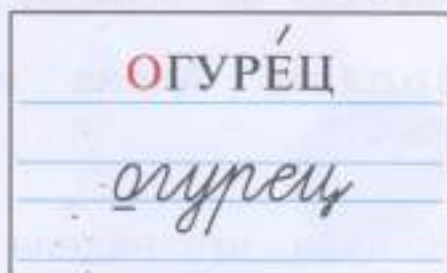 ОГУРЕ́Ц
огурец